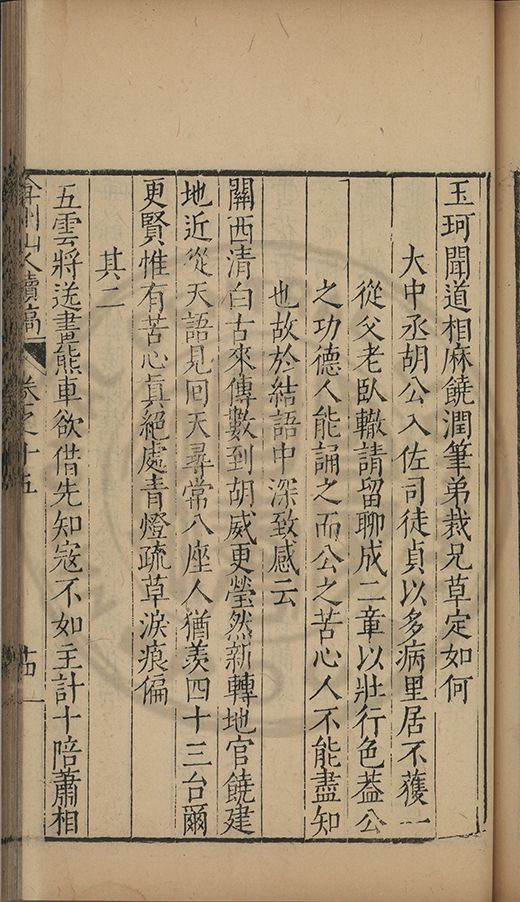 玉珂聞道相麻饒潤筆弟裁兄草定如何
大中丞胡公入佐司徒貞以多病里居不獲一
從父老臥轍請留聊成二章以壯行色葢公
之功德人能誦之而公之苦心人不能盡知
也故於結語中深致感云
關西清白古來傳數到胡威更瑩然新轉地官饒建
地近從天語見回天尋常八座人猶羨四十三台爾
更賢惟有苦心真絕處青燈疏草淚痕偏
其二
五雲將送畫熊車欲借先知寇不如主計十陪蕭相
弇州山人續稿
卷之十五
十四